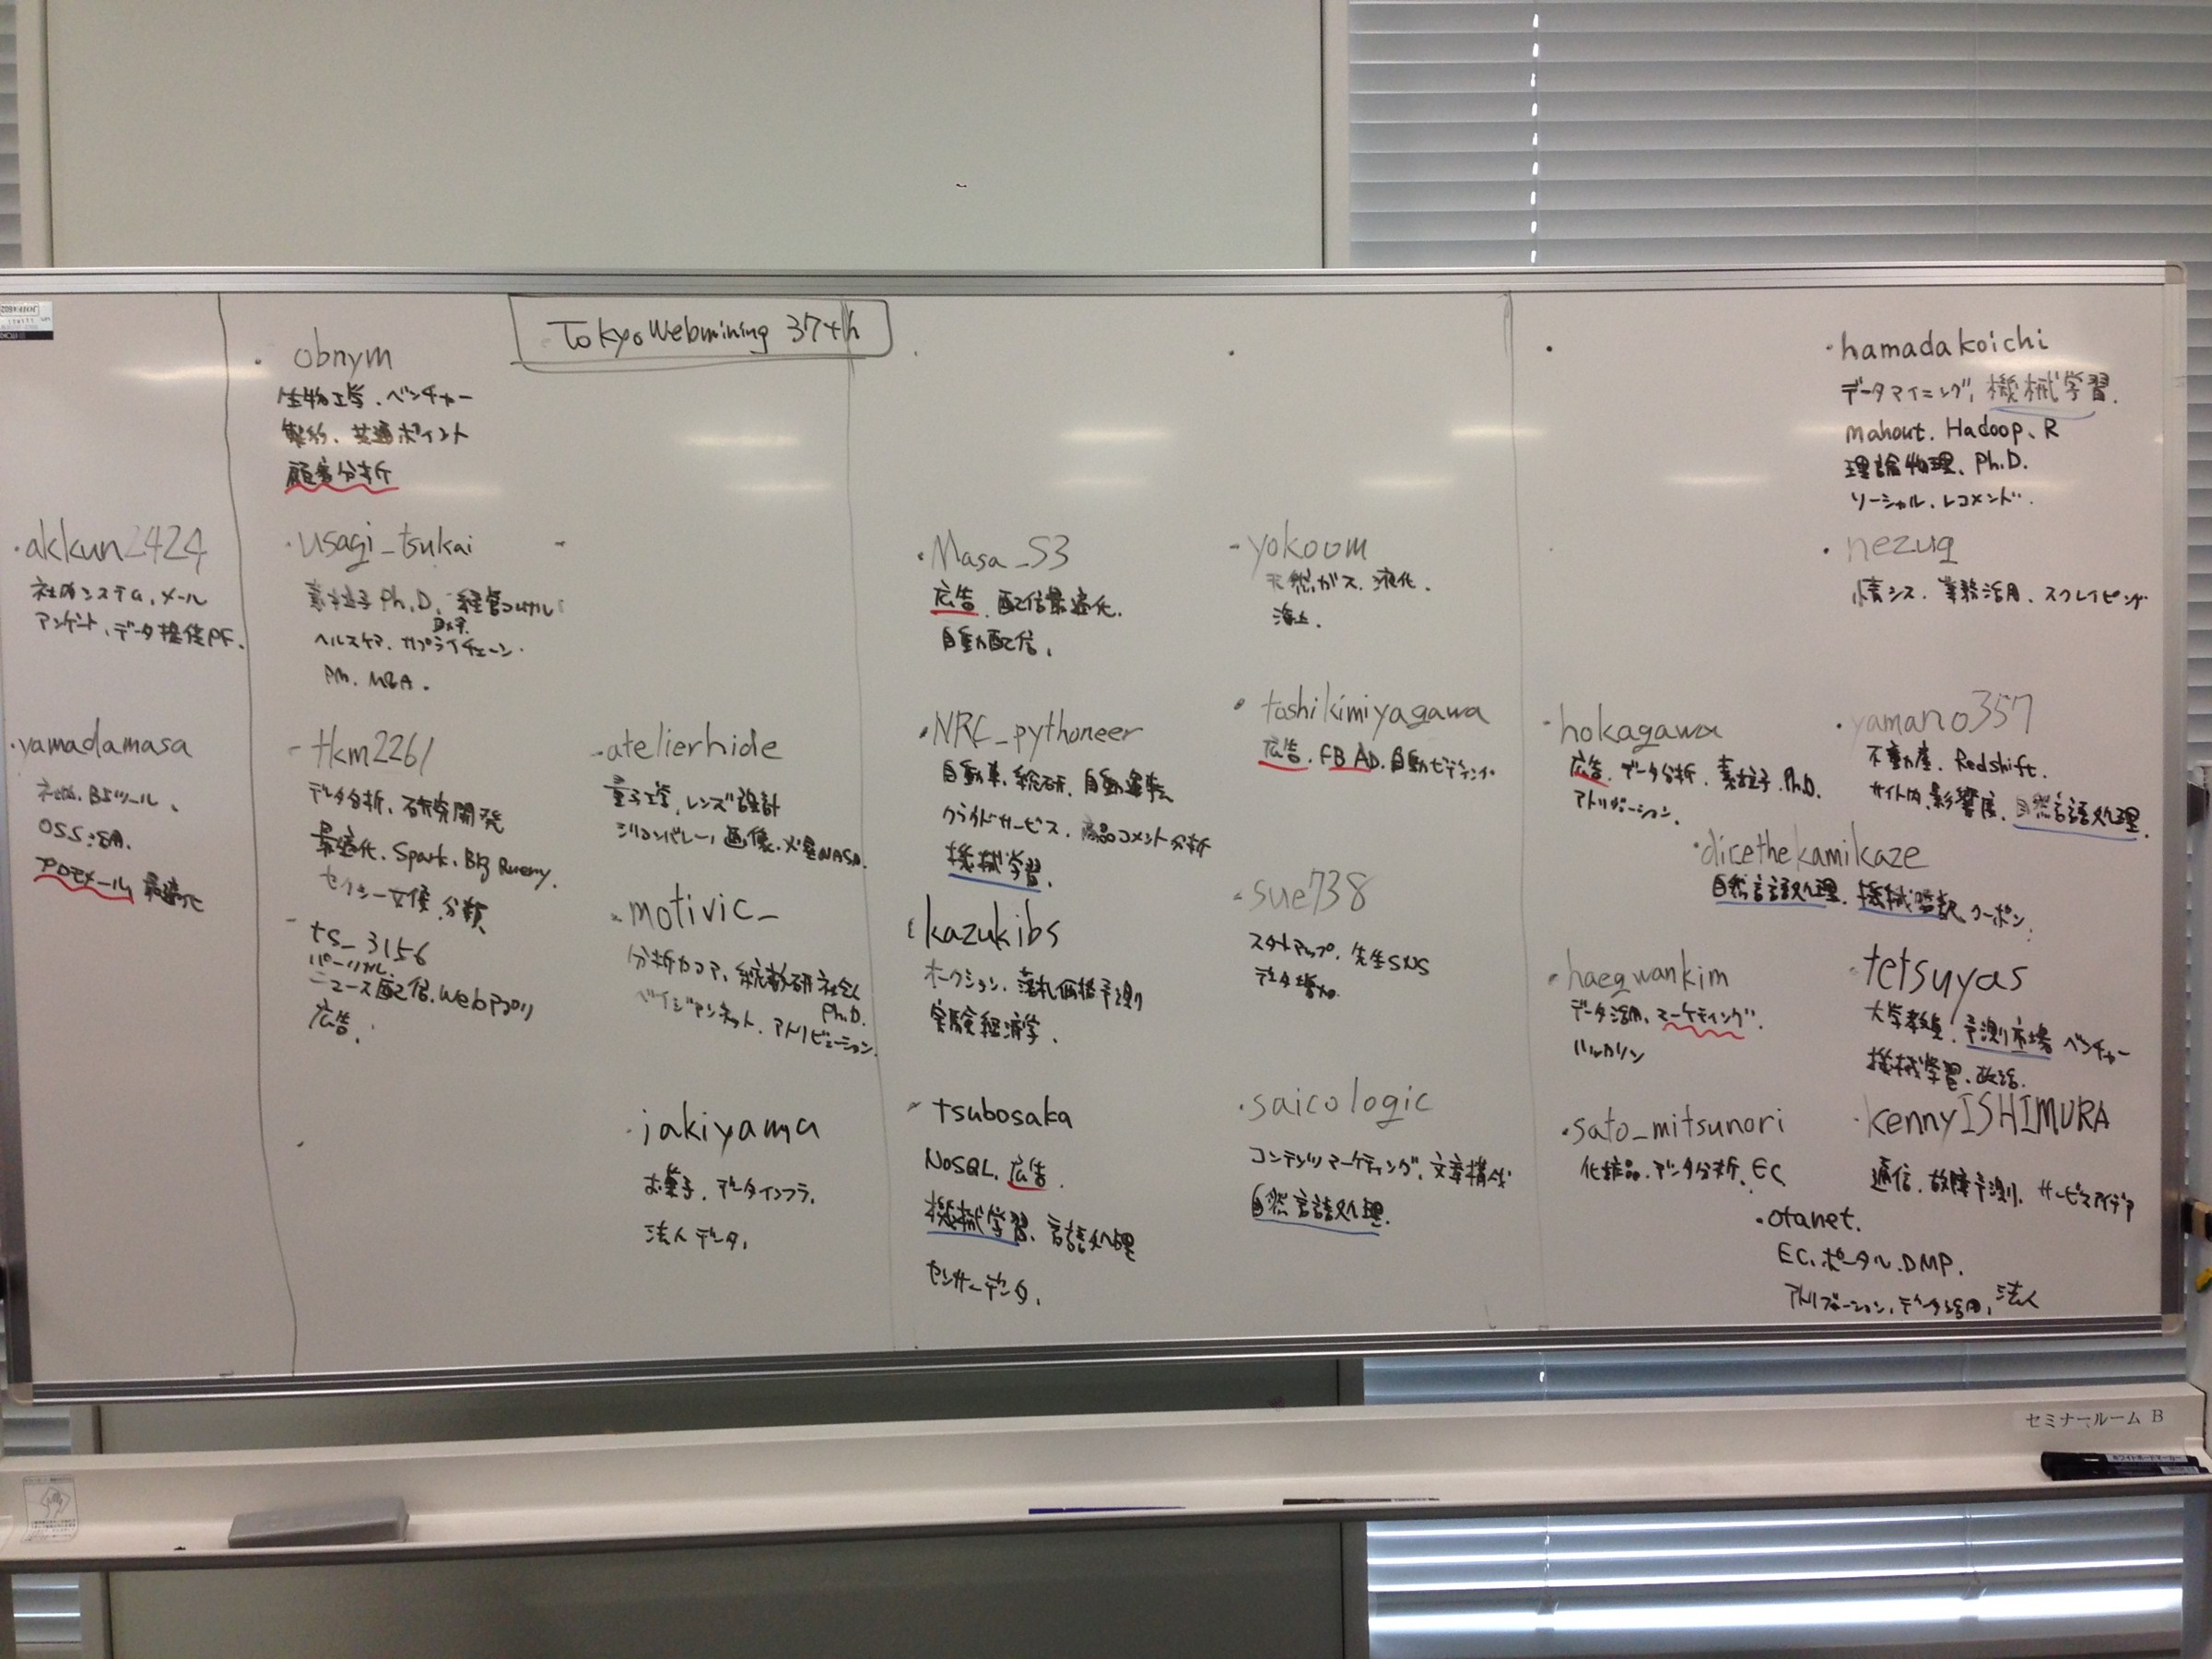 Tokyo Webmining 37th
akkun2424
社内システム、メール
アンケート、データ提供PF.
yamadamasa
社内、BIツール、
OSS活用.
最適化
obnym
生物工学、ベンチャー
共通ポイント
顧客分析
usagi_tsukai
素粒子 Ph.D. 経営コンサル
ヘルスケア、サプライチェーン
PM. MBA.
tkm2261
データ分析、研究開発
最適化、Spark、Big Query.
分類
ts_3156
ニュース配信、Webアプリ
広告.
atelierhide
量子工学、レンズ設計
シリコンバレー、画像、火星NASA.
motivic_
分析カコア、統数研 社会人
Ph.D.
ベイジアンネット、アトリビューション.
jakiyama
お菓子、データインフラ.
法人データ.
Masa_S3
広告、配信最適化.
自動配信.
NRC_pythoneer
自動車、総研、自動運転
クラウドサービス、商品コメント分析
機械学習.
kazukibs
オークション、落札価格予測
実験経済学.
tsubosaka
NoSQL、広告.
機械学習、言語処理
センサーデータ.
yokoum
天然ガス、液化.
海上.
toshikimiyagawa
広告、FB AD、自動ビディング.
sue738
スタートアップ、先生SNS
saicologic
コンテンツマーケティング、文章構成
自然言語処理.
hokagawa
広告、データ分析、素粒子、Ph.D.
アトリビューション.
haegwankim
データ活用、マーケティング.
sato_mitsunori
化粧品、データ分析、EC
hamadakoichi
データマイニング、機械学習.
Mahout、Hadoop、R
理論物理、Ph.D.
ソーシャル、レコメンド.
nezuq
情シス、業務活用、スクレイピング
yamano357
不動産、Redshift.
サイト内影響度、自然言語処理.
dicethekamikaze
自然言語処理、機械翻訳、クーポン.
tetsuyas
大学教員、予測市場 ベンチャー
機械学習、政治.
kennyISHIMURA
通信、故障予測、サービスアイデア
otanet.
EC、ポータル、DMP.
アトリビューション、データ活用、法人
セミナールーム B